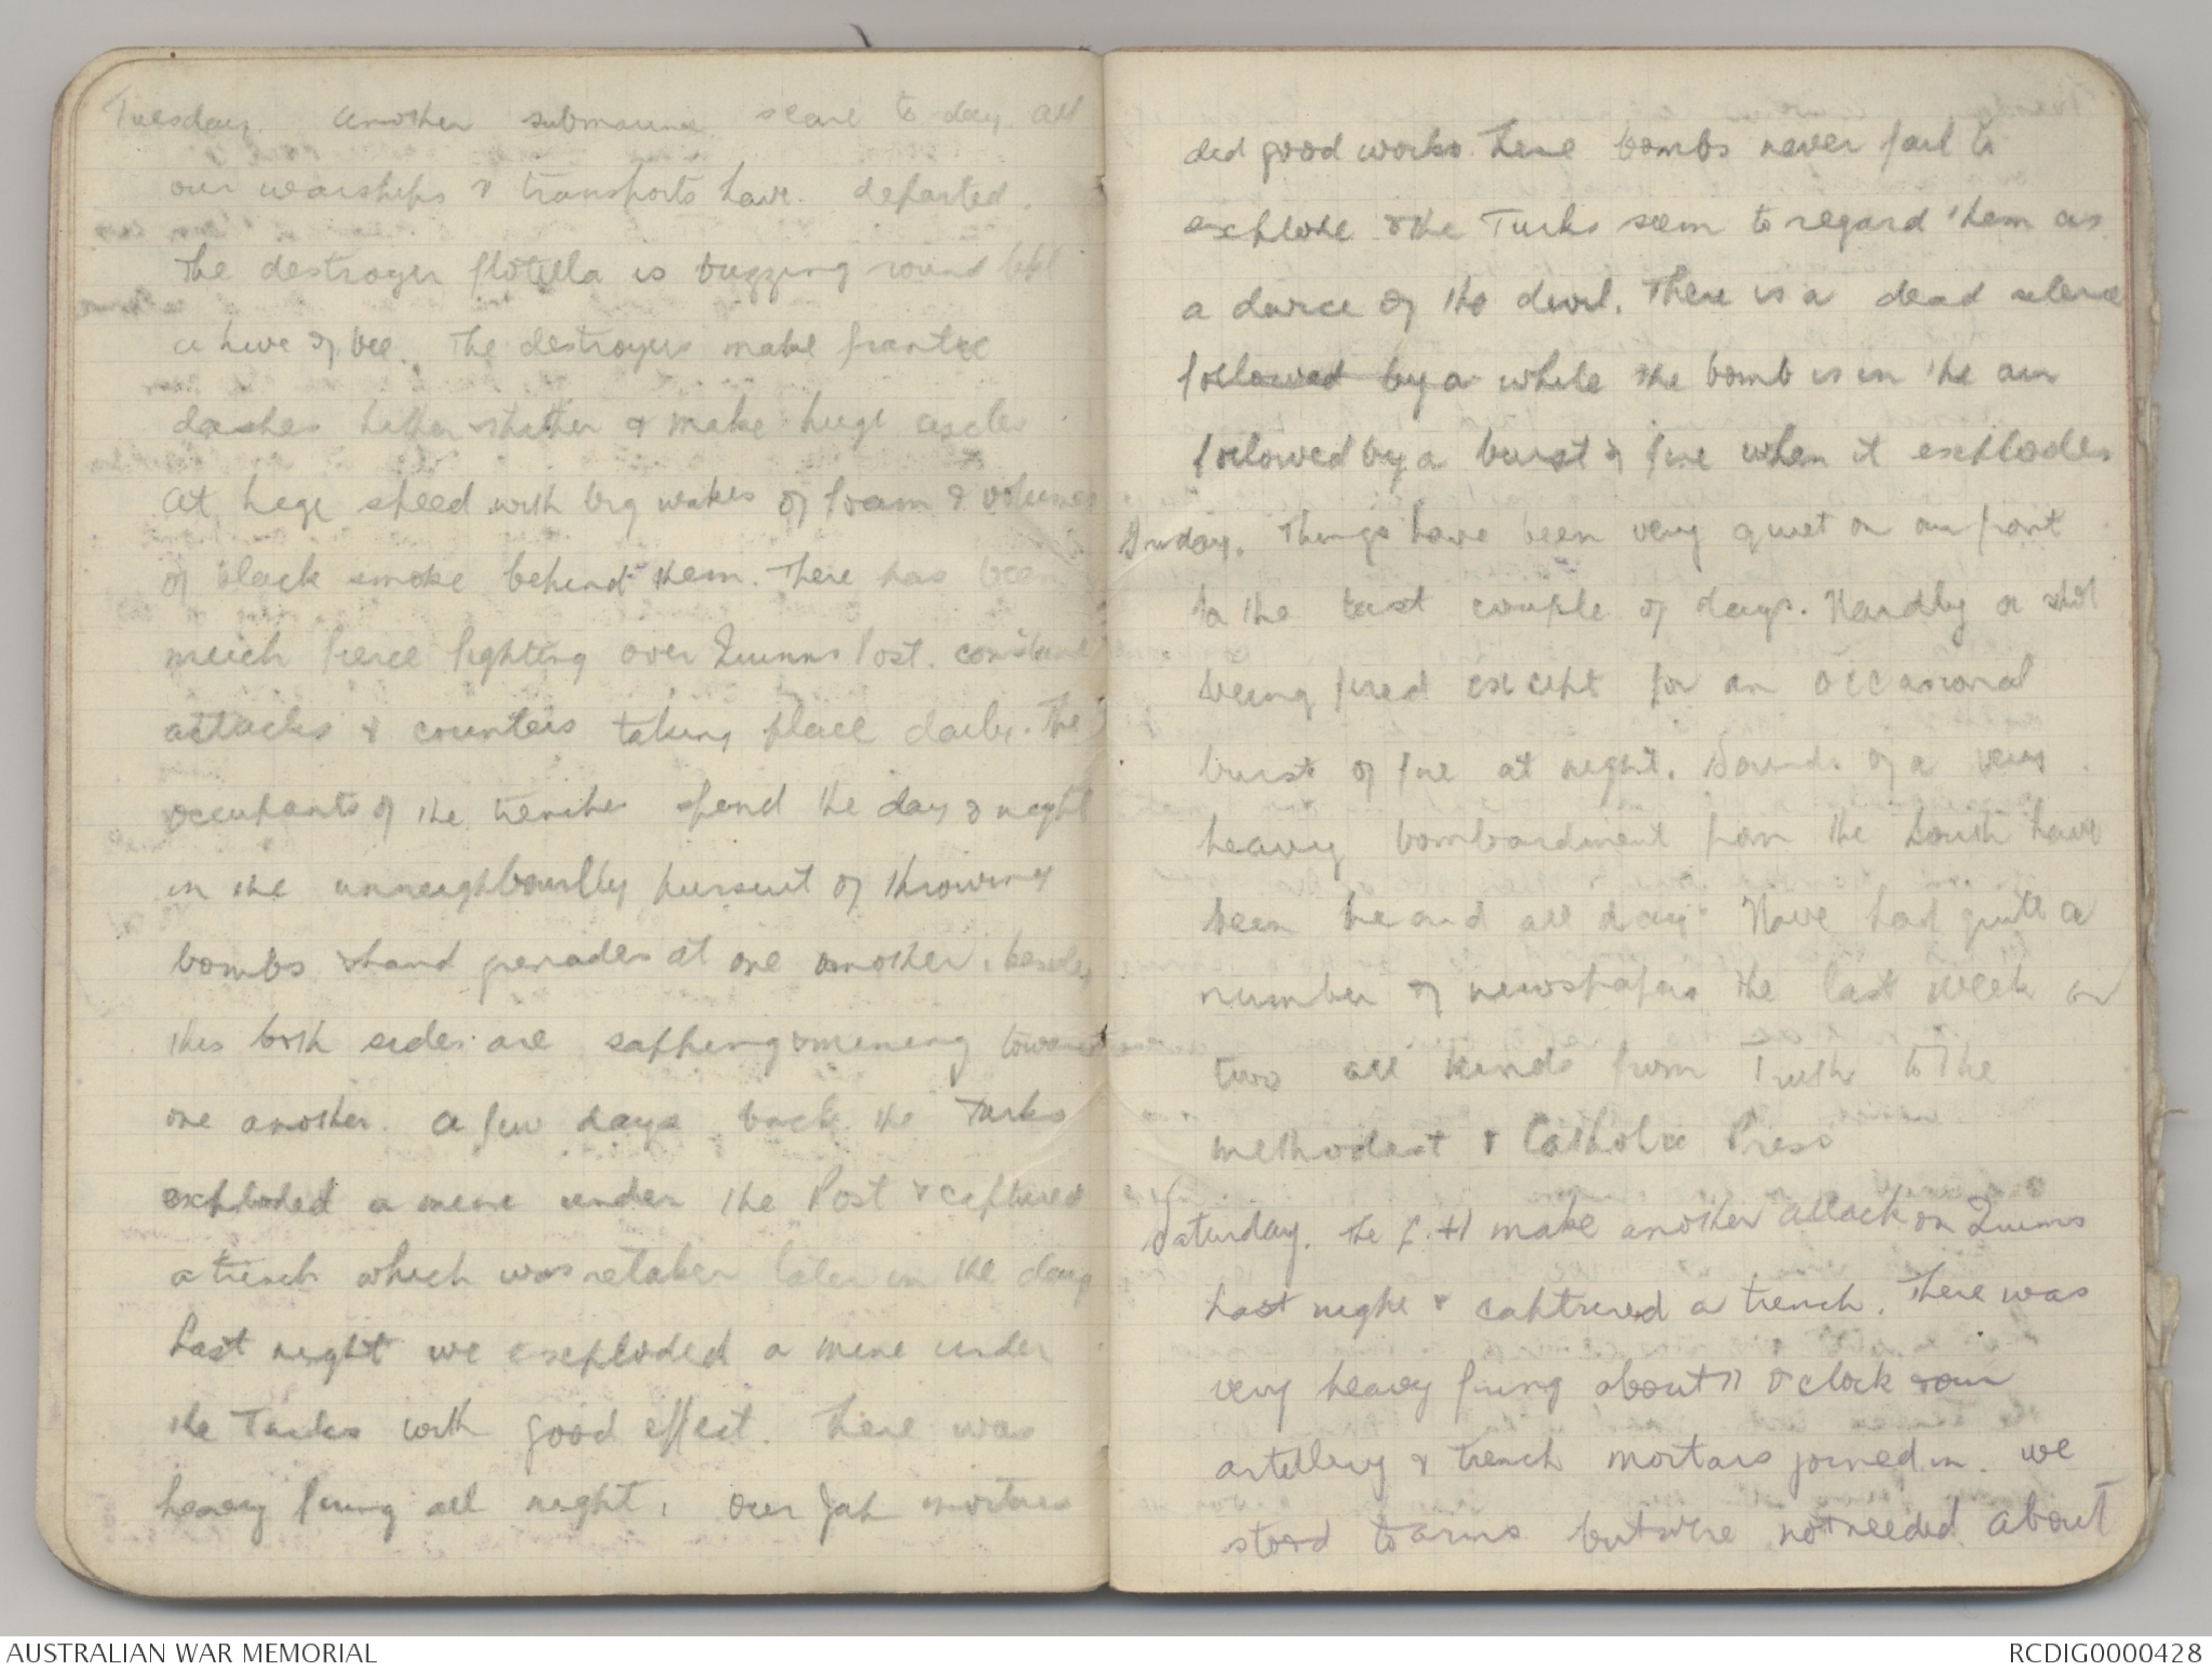 Tuesday. Another submarine scare to day. all
our warships & transports have. departed.
The destroyer flotilla is buzzing round like
a hive of bee. The destroyers make frantic
dashes hither & thither & make huge circles
at huge speed with big wakes of foam & volumes
of black smoke behind them. There has been
much fierce fighting over Quinns Post. constant
attacks & counters taking place daily. The
occupants of the trenches spend the day & night
in the unneighbourlly pursuit of throwing
bombs & hand grenades at one another. besides
this both sides are sapping & mining towards
one another. A few days back the Turks
exploded a mine under the Post & captured
a trench which was retaken later in the day
Last night we exploded a mine under
the Turks with good effect. There was
heavy firing all night. Our Jap mortars
did good works. These bombs never fail to
explode & the Turks seem to regard them as
a device of the devil. There is a dead silence
followed by a while the bomb is in the air
followed by a burst of fire when it explodes
Friday. Things have been very quiet on our front
to the last couple of days. Hardly a shot
being fired except for an occasional
burst of fire at night. Sounds of a very
heavy bombardment from the South have
been heard all day. Have had quite a
number of newspapers the last week or
two all kinds from Truth to the
methodist & Catholic Press
Saturday. The L.H make another attack on Quinns
Last night & captured a trench. There was
very heavy firing about 11 o'clock & our
artillery & trench mortars joined in. we
stood to arms but were not needed. About
AUSTRALIAN WAR MEMORIAL
RCDIG0000428